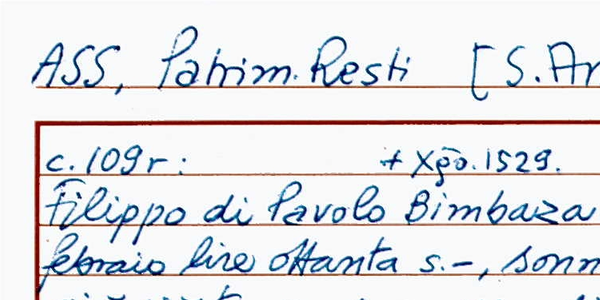 ASS, Patrim. Resti [S. Ar
c. 109 r: + Xp̄o. 1529.
Filippo di Pavolo Bimbaza
febraio lire ottanta s.–, sonn